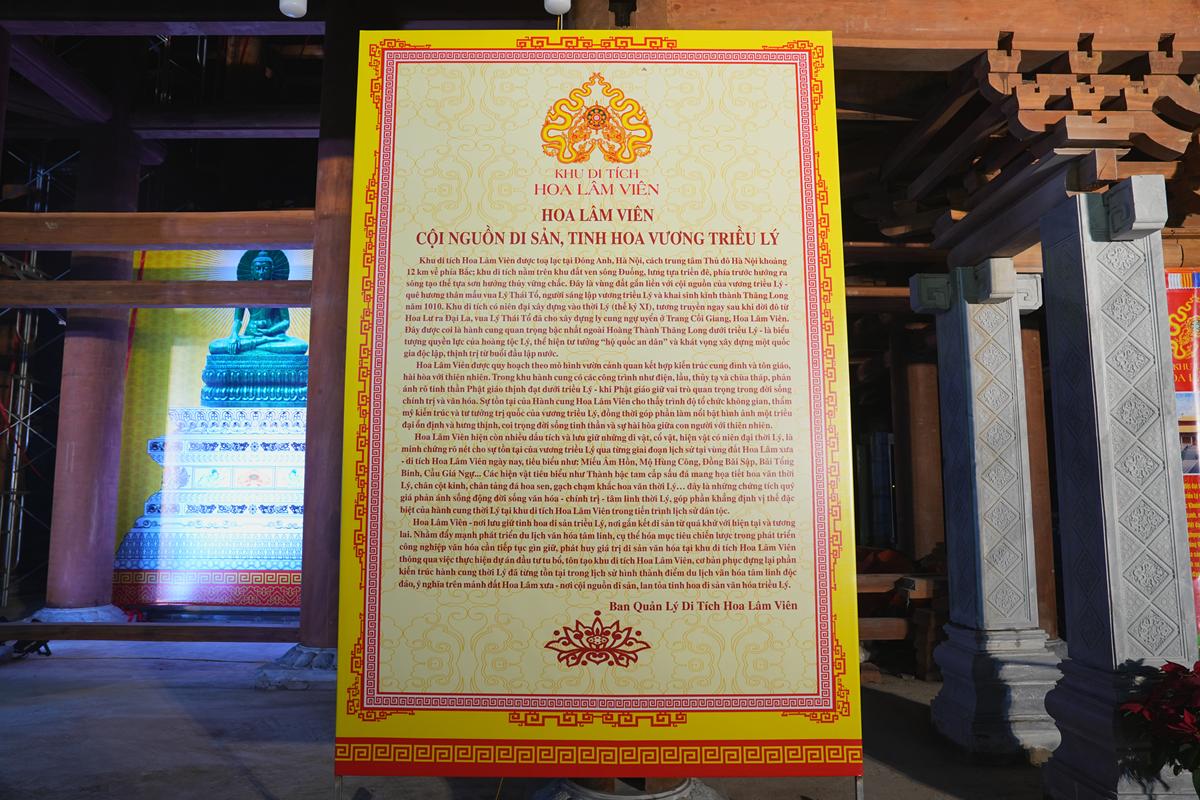 KHU DI TÍCH
HOA LÂM VIÊN
HOA LÂM VIÊN
CỘI NGUỒN DI SẢN, TINH HOA VƯƠNG TRIỀU LÝ
Khu di tích Hoa Lâm Viên được toạ lạc tại Đông Anh, Hà Nội, cách trung tâm Thủ đô Hà Nội khoảng
12 km về phía Bắc; khu di tích nằm trên khu đất ven sông Đuống, lưng tựa triền đê, phía trước hướng ra
sông tạo thế tựa sơn hướng thủy vững chắc. Đây là vùng đất gắn liền với cội nguồn của vương triều Lý -
quê hương thân mẫu vua Lý Thái Tổ, người sáng lập vương triều Lý và khai sinh kinh thành Thăng Long
năm 1010. Khu di tích có niên đại xây dựng vào thời Lý (thế kỷ XI), tương truyền ngay sau khi dời đô từ
Hoa Lư ra Đại La, vua Lý Thái Tổ đã cho xây dựng ly cung ngự uyển ở Trang Cối Giang, Hoa Lâm Viên.
Đây được coi là hành cung quan trọng bậc nhất ngoài Hoàng Thành Thăng Long dưới triều Lý - là biểu
tượng quyền lực của hoàng tộc Lý, thể hiện tư tưởng “hộ quốc an dân” và khát vọng xây dựng một quốc
gia độc lập, thịnh trị từ buổi đầu lập nước.
Hoa Lâm Viên được quy hoạch theo mô hình vườn cảnh quan kết hợp kiến trúc cung đình và tôn giáo,
hài hòa với thiên nhiên. Trong khu hành cung có các công trình như điện, lầu, thủy tạ và chùa tháp, phản
ánh rõ tinh thần Phật giáo thịnh đạt dưới triều Lý - khi Phật giáo giữ vai trò quan trọng trong đời sống
chính trị và văn hóa. Sự tồn tại của Hành cung Hoa Lâm Viên cho thấy trình độ tổ chức không gian, thẩm
mỹ kiến trúc và tư tưởng trị quốc của vương triều Lý, đồng thời góp phần làm nổi bật hình ảnh một triều
đại ổn định và hưng thịnh, coi trọng đời sống tinh thần và sự hài hòa giữa con người với thiên nhiên.
Hoa Lâm Viên hiện còn nhiều dấu tích và lưu giữ những di vật, cổ vật, hiện vật có niên đại thời Lý, là
minh chứng rõ nét cho sự tồn tại của vương triều Lý qua từng giai đoạn lịch sử tại vùng đất Hoa Lâm xưa
- di tích Hoa Lâm Viên ngày nay, tiêu biểu như: Miếu Âm Hồn, Mộ Hùng Công, Đồng Bãi Sập, Bãi Tống
Binh, Cầu Giá Ngự... Các hiện vật tiêu biểu như Thành bậc tam cấp sấu đá mang họa tiết hoa văn thời
Lý, chân cột kinh, chân tảng đá hoa sen, gạch chạm khắc hoa văn thời Lý… đây là những chứng tích quý
giá phản ánh sống động đời sống văn hóa - chính trị - tâm linh thời Lý, góp phần khẳng định vị thế đặc
biệt của hành cung thời Lý tại khu di tích Hoa Lâm Viên trong tiến trình lịch sử dân tộc.
Hoa Lâm Viên - nơi lưu giữ tinh hoa di sản triều Lý, nơi gắn kết di sản từ quá khứ với hiện tại và tương
lai. Nhằm đẩy mạnh phát triển du lịch văn hóa tâm linh, cụ thể hóa mục tiêu chiến lược trong phát triển
công nghiệp văn hóa cần tiếp tục gìn giữ, phát huy giá trị di sản văn hóa tại khu di tích Hoa Lâm Viên
thông qua việc thực hiện dự án đầu tư tu bổ, tôn tạo khu di tích Hoa Lâm Viên, cơ bản phục dựng lại phần
kiến trúc hành cung thời Lý đã từng tồn tại trong lịch sử hình thành điểm du lịch văn hóa tâm linh độc
đáo, ý nghĩa trên mảnh đất Hoa Lâm xưa - nơi cội nguồn di sản, lan tỏa tinh hoa di sản văn hóa triều Lý.
Ban Quản Lý Di Tích Hoa Lâm Viên